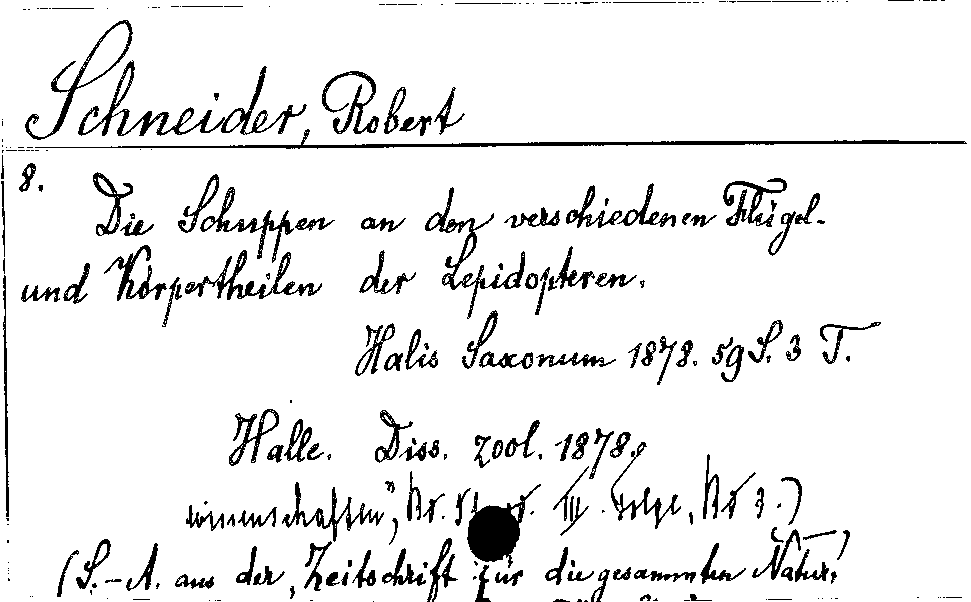 Schneider, Robert
8.
Die Schuppen an den verschiedenen Flügel-
und Körpertheilen der Lepidopteren.
Halis Saxonum 1878. 59 S. 3 T.
Halle. Diss. zool. 1878.
(S.-A. aus der „Zeitschrift für die gesammten Natur-
wissenschaften", Bd. III. Folge, Bd 3.)